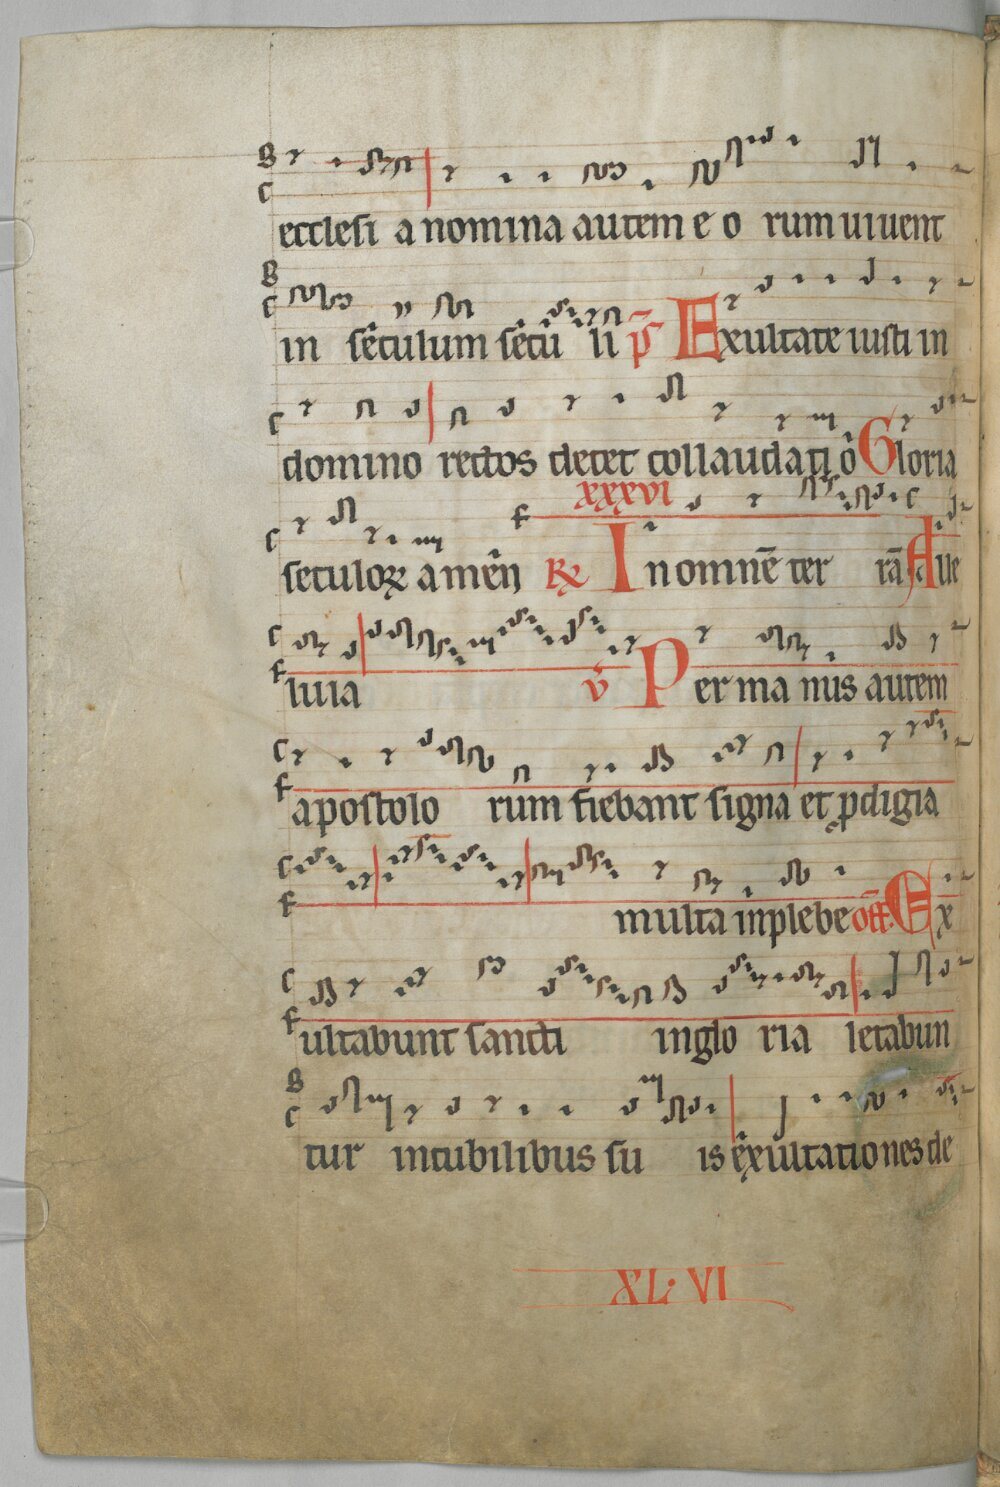 ecclesi a nomina autem e o rum uiuent
in sēculum sēcu li ps̄ Exultate iusti in
domino rectos decet collaudati ō Gloria
XXXVI
seculoꝝ amen ℟ In omnē ter rā Alle
luia v̄ Per ma nus autem
apostolo rum fiebant signa et ꝓdigia
multa inplebe off. Ex
ultabunt sancti inglo ria letabun
tur incubilibus su is exultationes de
XL·VI